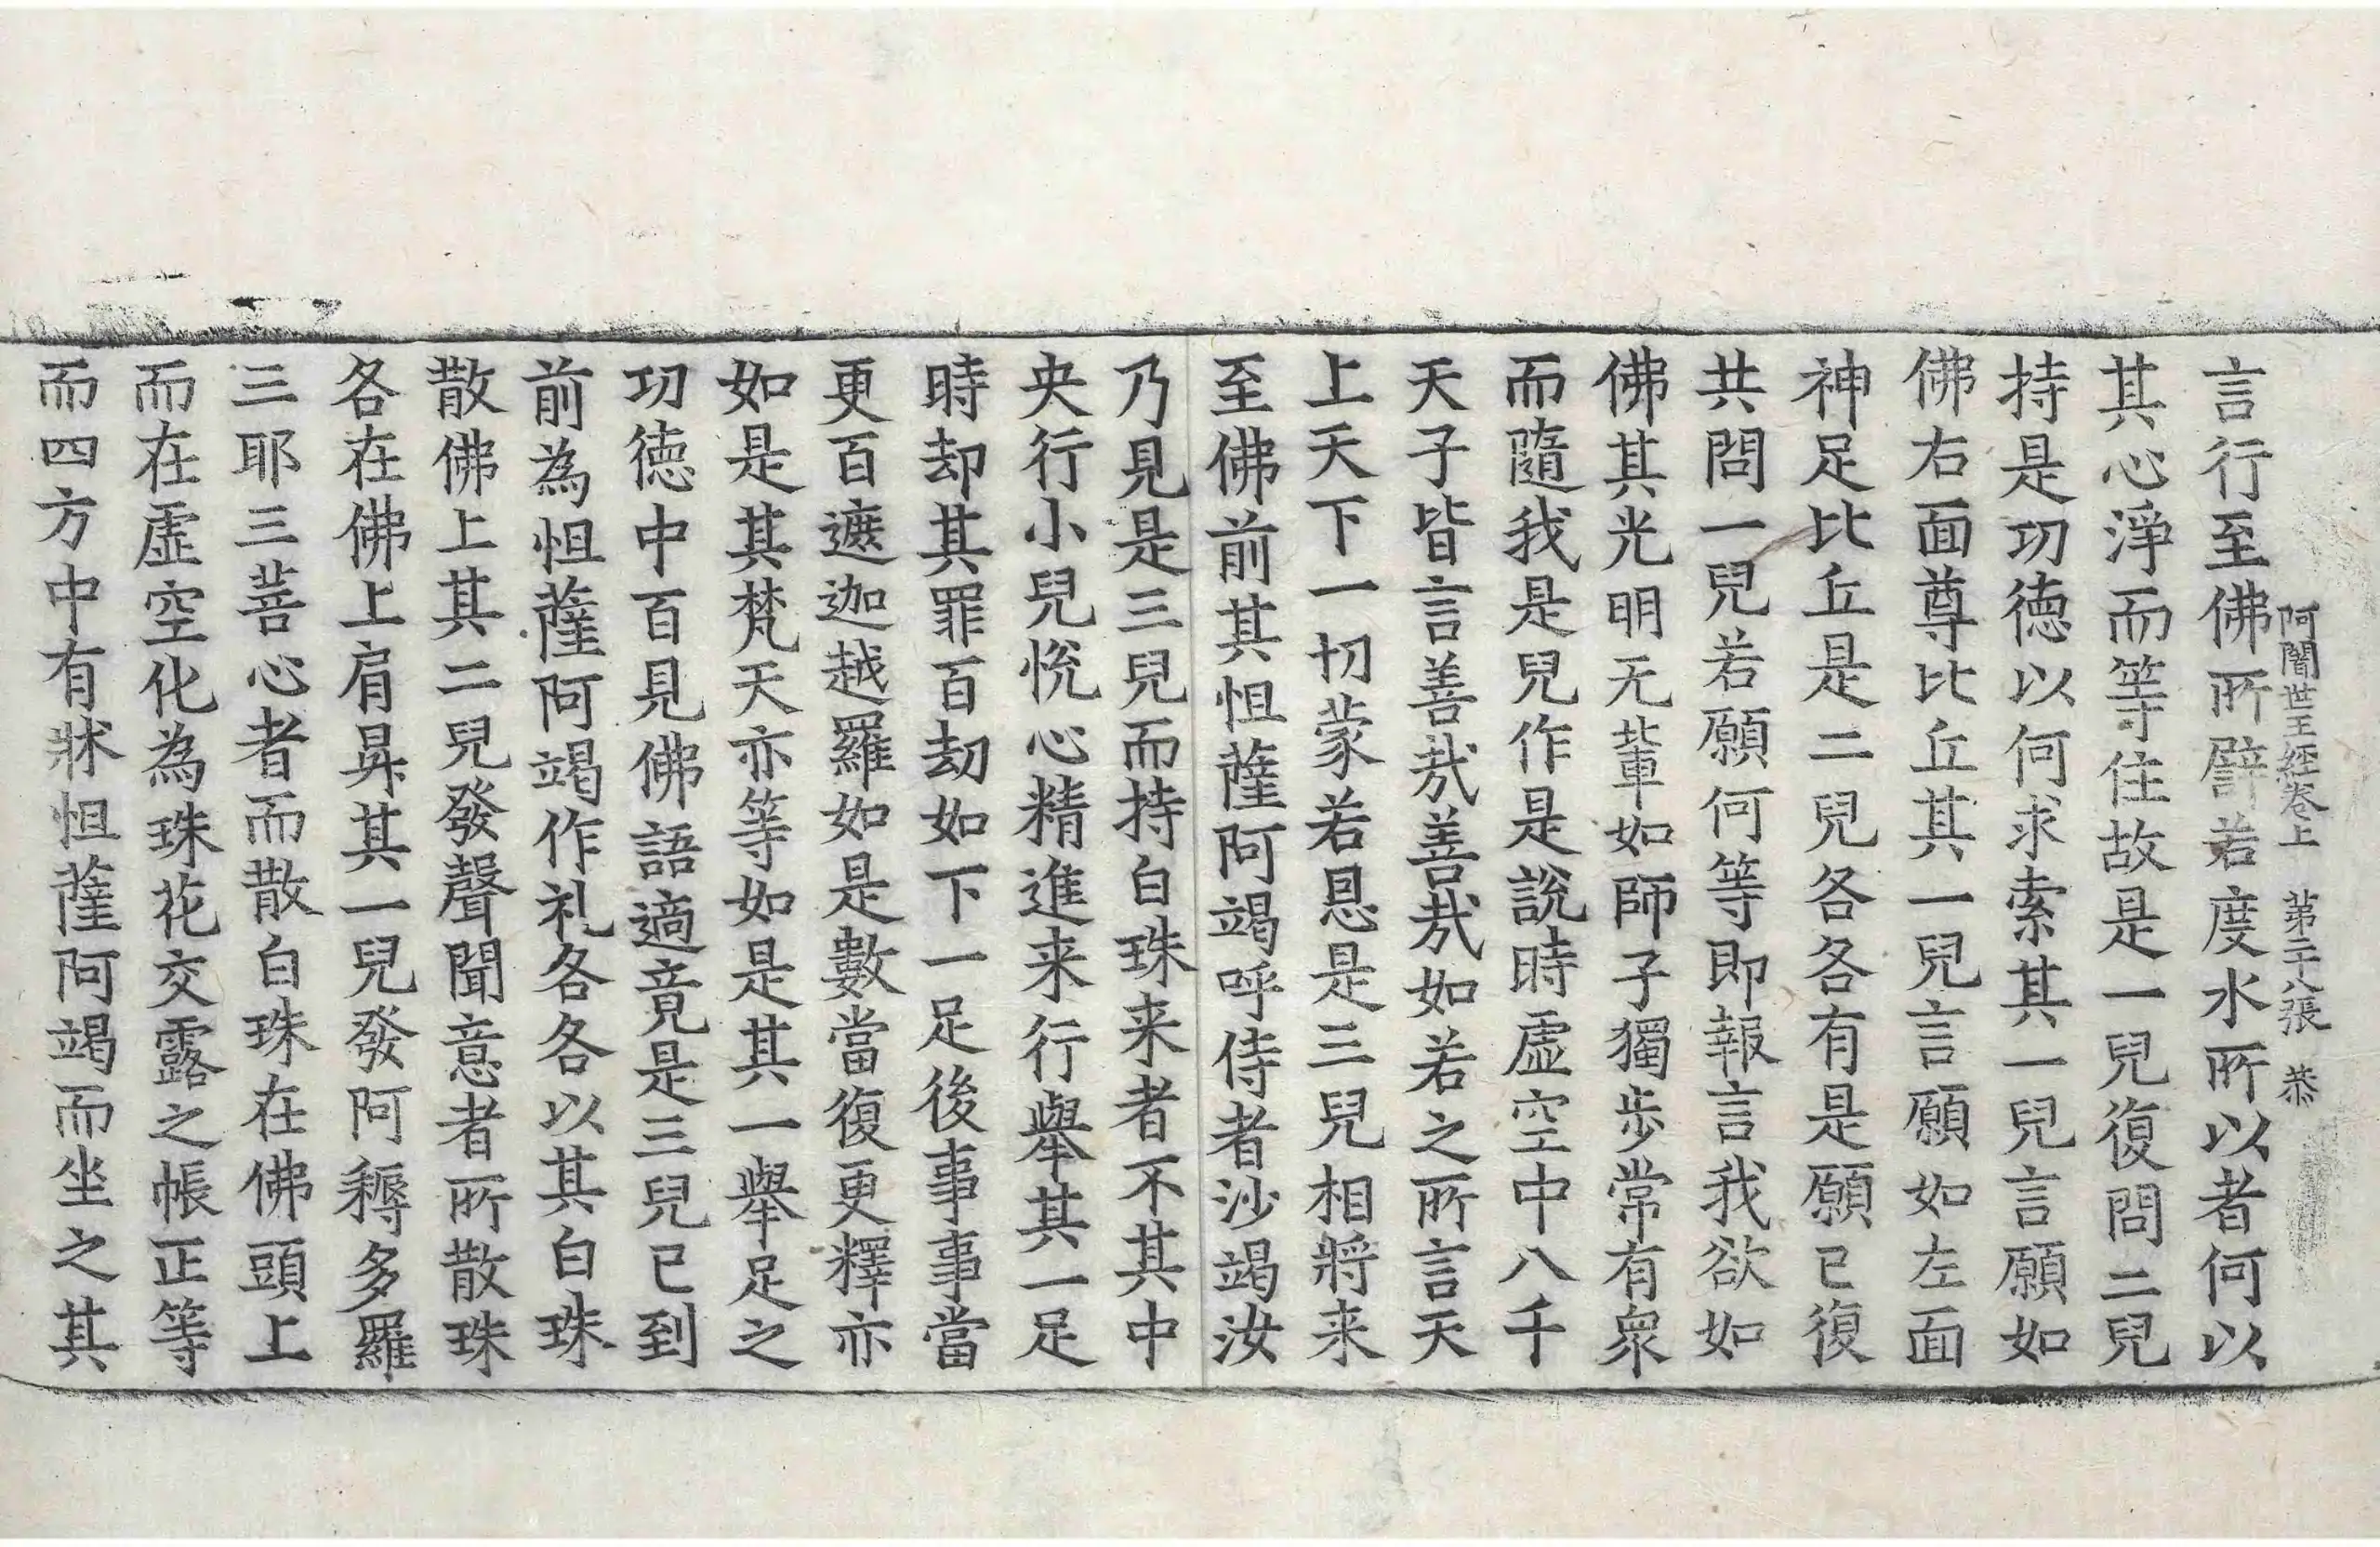 阿闍世王經卷上　第二十八張　恭
言行至佛所譬若度水所以者何以
其心淨而等住故是一兒復問二兒
持是功德以何求索其一兒言願如
佛右面尊比丘其一兒言願如左面
神足比丘是二兒各各有是願已復
共問一兒若願何等即報言我欲如
佛其光明无軰如師子獨步常有衆
而隨我是兒作是說時虛空中八千
天子皆言善哉善哉如若之所言天
上天下一切蒙若恩是三兒相將来
至佛前其怛薩阿竭呼侍者沙竭汝
乃見是三兒而持白珠来者不其中
央行小兒悅心精進来行舉其一足
時却其罪百劫如下一足後事事當
更百遮迦越羅如是數當復更釋亦
如是其梵天亦等如是其一舉足之
功德中百見佛語適竟是三兒已到
前為怛薩阿竭作礼各各以其白珠
散佛上其二兒發聲聞意者所散珠
各在佛上肩昇其一兒發阿耨多羅
三耶三菩心者而散白珠在佛頭上
而在虛空化為珠花交露之帳正等
而四方中有牀怛薩阿竭而坐之其